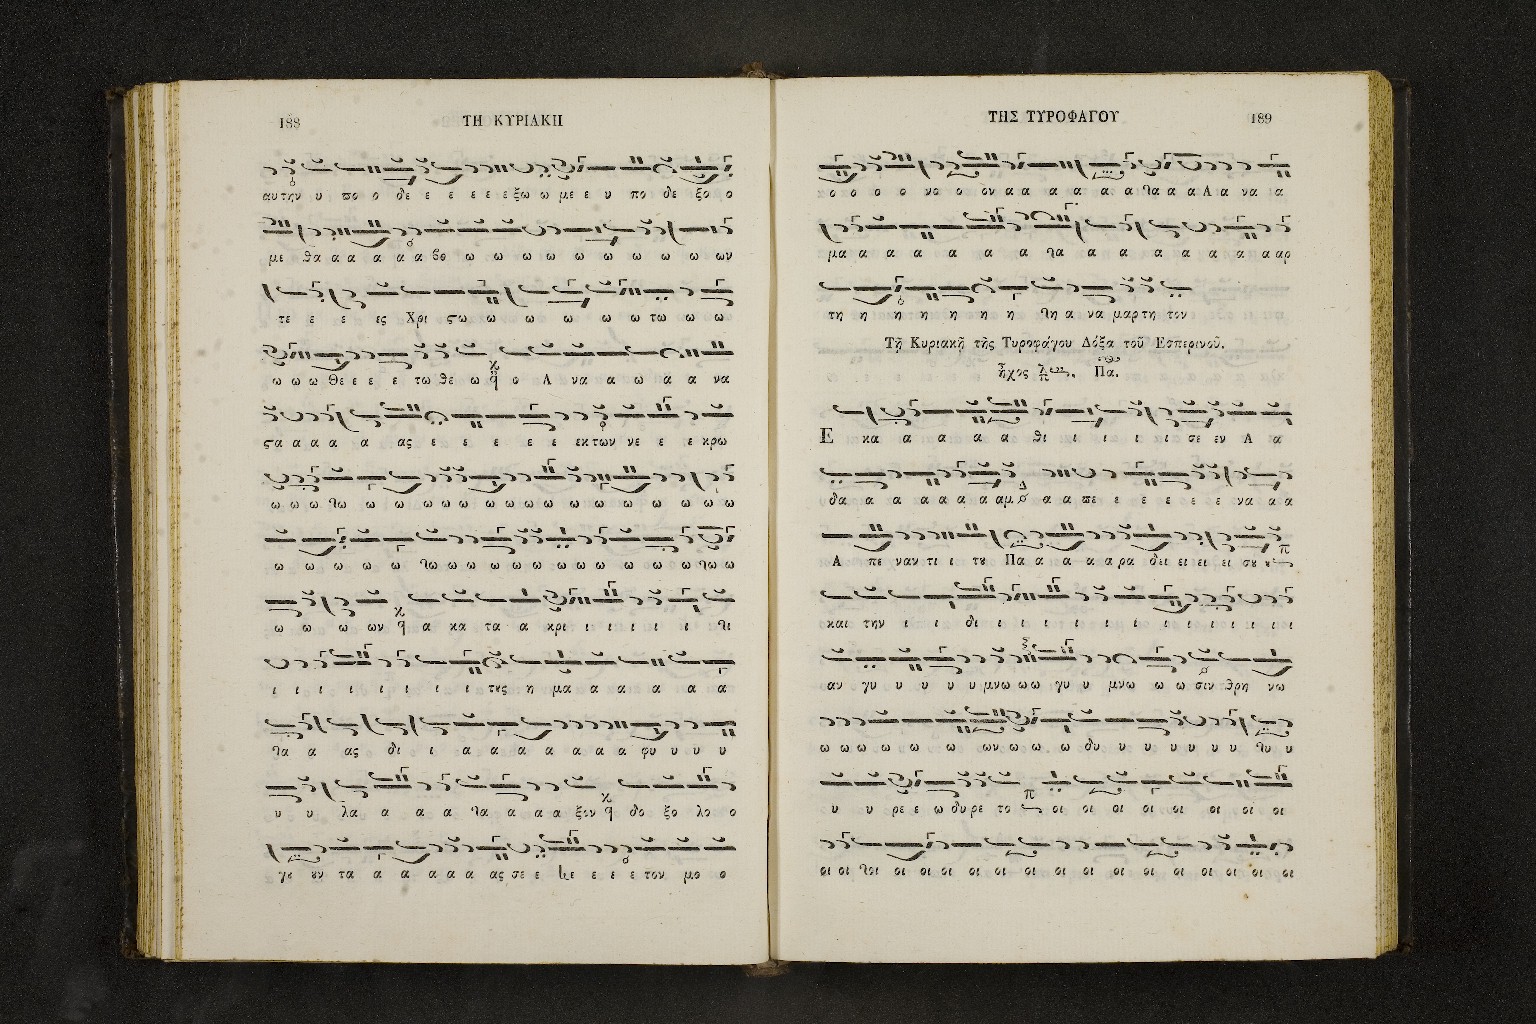 188
ΤΗ ΚΥΡΙΑΚΗ
αυτην υ πο ο δε ε ε ε ε ε ξω ω με ε υ πο δε ξο ο
με θα α α α α α θο ω ω ω ω ω ω ω ω ω ω ων
τε ε ε ες Χρι ςω ω ω ω ω ω τω ω ω
ω ω ω Θε ε ε ε τω θε ω ο Α να α ω α α να
ςα α α α α ας ε ε ε ε ε εκ των νε ε ε κρω
ω ω ω ω ω ω ω ω ω ω ω ω ω ω ω ω ω ω ω
ω ω ω ω ω ω ω ω ω ω ω ω ω ω ω ω ω
ω ω ω ων α κα τα α κρι ι ι ι ι ι
ι ι ι ι ι ι ι ι τȣς η μα α α α α α
α ας δι ι α α α α α α α α φυ υ υ υ
υ υ λα α α α α α α α ξον δο ξο λο ο
γȣ ȣν τα α α α α α ας σε ε ε ε ε ε τον μο ο
ΤΗΣ ΤΥΡΟΦΑΓΟΥ
189
ο ο ο ο νο ο ον α α α α α α α α α Α α να α
μα α α α α α α α α α α α α α α αρ
τη η η η η η η η α να μαρ τη τον
Τῇ Κυριακῇ τῆς Τυροφάγου Δόξα τοῦ Εσπερινοῦ.
ἦχος Πα.
Ε κα α α α α θι ι ι ι ι ι σε εν Α α
δα α α α α α α αμ α α πε ε ε ε ε ε να α α
Α πε ναν τι ι τȣ Πα α α α α ρα δει ει ει ει ει σȣ ȣ
και την ι ι δι ι ι ι ι ι ι ι ι ι ι ι ι ι
αν γυ υ υ υ υ μνω ω ω γυ υ μνω ω ω σιν θρη νω
ω ω ω ω ω ω ω ων ω ω ω ω δυ υ υ υ υ υ υ υ υ
υ υ ρε ε ω δυ ρε το οι οι οι οι οι οι οι οι
οι οι οι οι οι οι οι οι οι οι οι οι οι οι οι οι οι οι